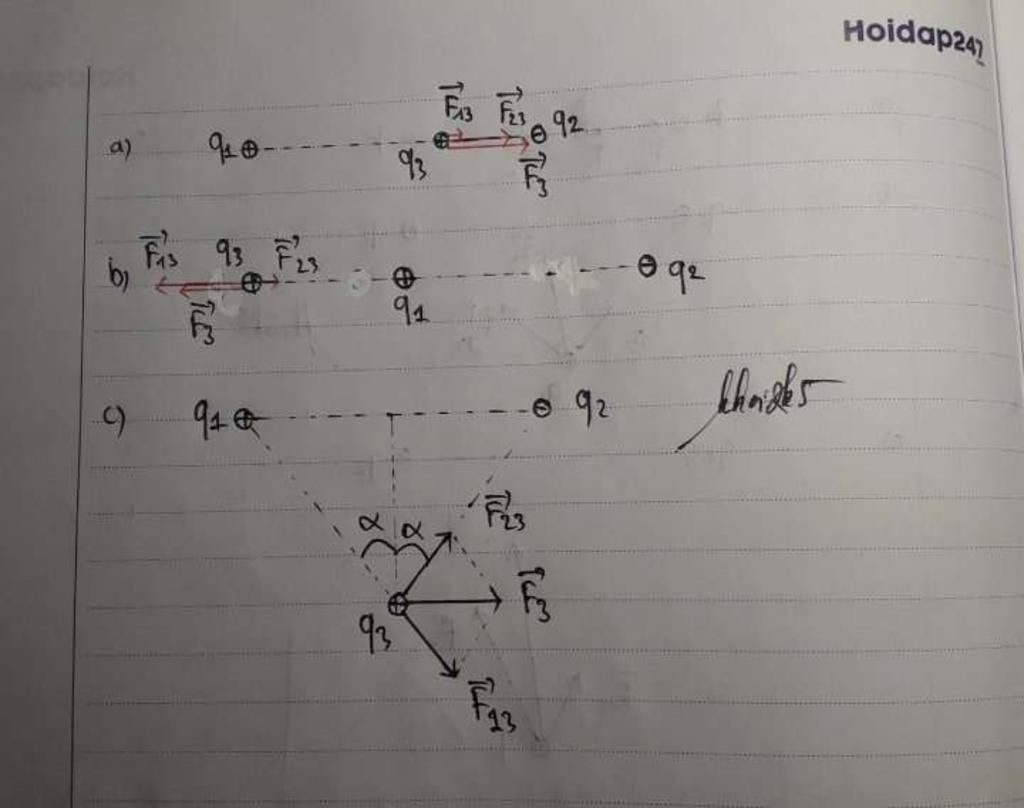 Hoidap247
a) q1 ⊕ F⃗13 q3 ⊕ F⃗23 ⊖ q2 F⃗3
b) F⃗13 q3 ⊕ F⃗23 F⃗3 ⊕ q1 ⊖ q2
c) q1 ⊕ ⊖ q2
F⃗23
α α
F⃗3
q3 ⊕
F⃗13